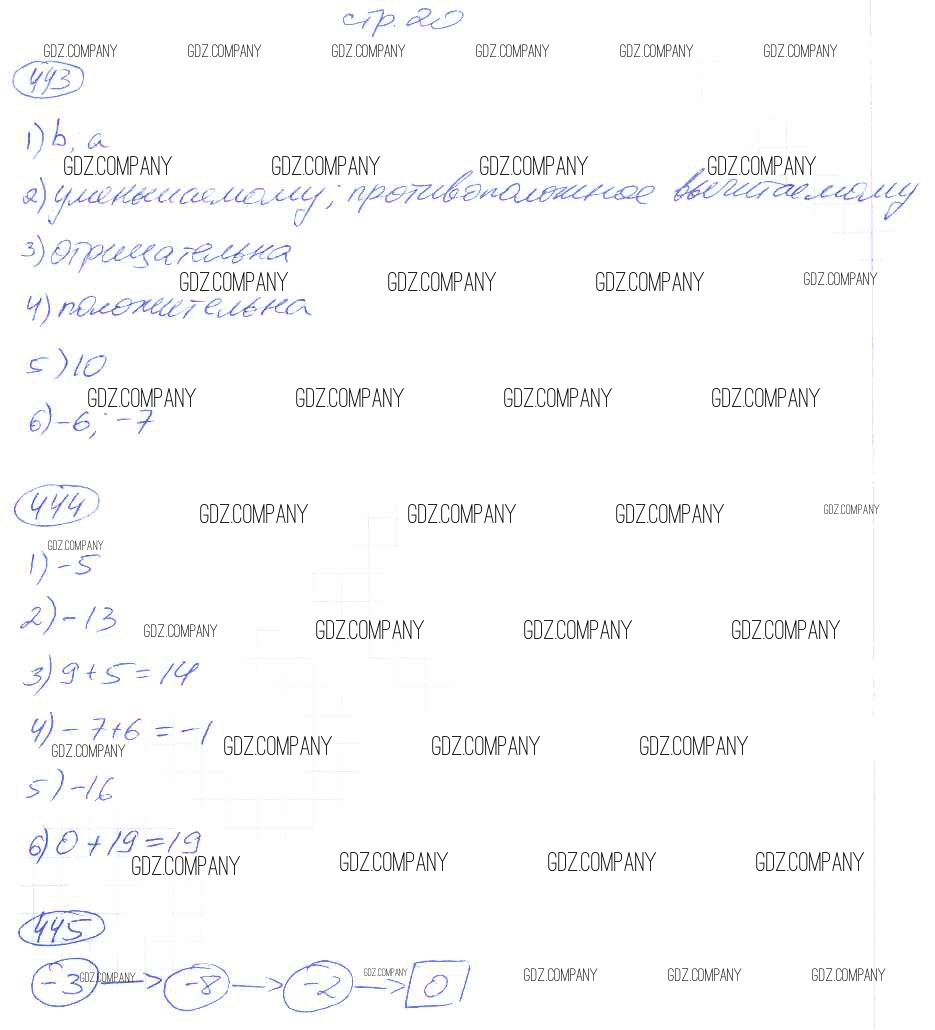 стр. 20
GDZ.COMPANY GDZ.COMPANY GDZ.COMPANY GDZ.COMPANY GDZ.COMPANY GDZ.COMPANY
443
1) b; a
GDZ.COMPANY GDZ.COMPANY GDZ.COMPANY GDZ.COMPANY
2) уменьшаемому; противоположное вычитаемому
3) отрицательна
GDZ.COMPANY GDZ.COMPANY GDZ.COMPANY GDZ.COMPANY
4) положительна
5) 10
GDZ.COMPANY GDZ.COMPANY GDZ.COMPANY GDZ.COMPANY
6) -6; -7
444
GDZ.COMPANY GDZ.COMPANY GDZ.COMPANY GDZ.COMPANY
GDZ.COMPANY
1) -5
2) -13
GDZ.COMPANY GDZ.COMPANY GDZ.COMPANY GDZ.COMPANY
3) 9+5=14
4) -7+6=-1
GDZ.COMPANY GDZ.COMPANY GDZ.COMPANY GDZ.COMPANY
5) -16
6) 0+19=19
GDZ.COMPANY GDZ.COMPANY GDZ.COMPANY GDZ.COMPANY
445
-3 → -8 → -2 → 0
GDZ.COMPANY GDZ.COMPANY GDZ.COMPANY GDZ.COMPANY GDZ.COMPANY